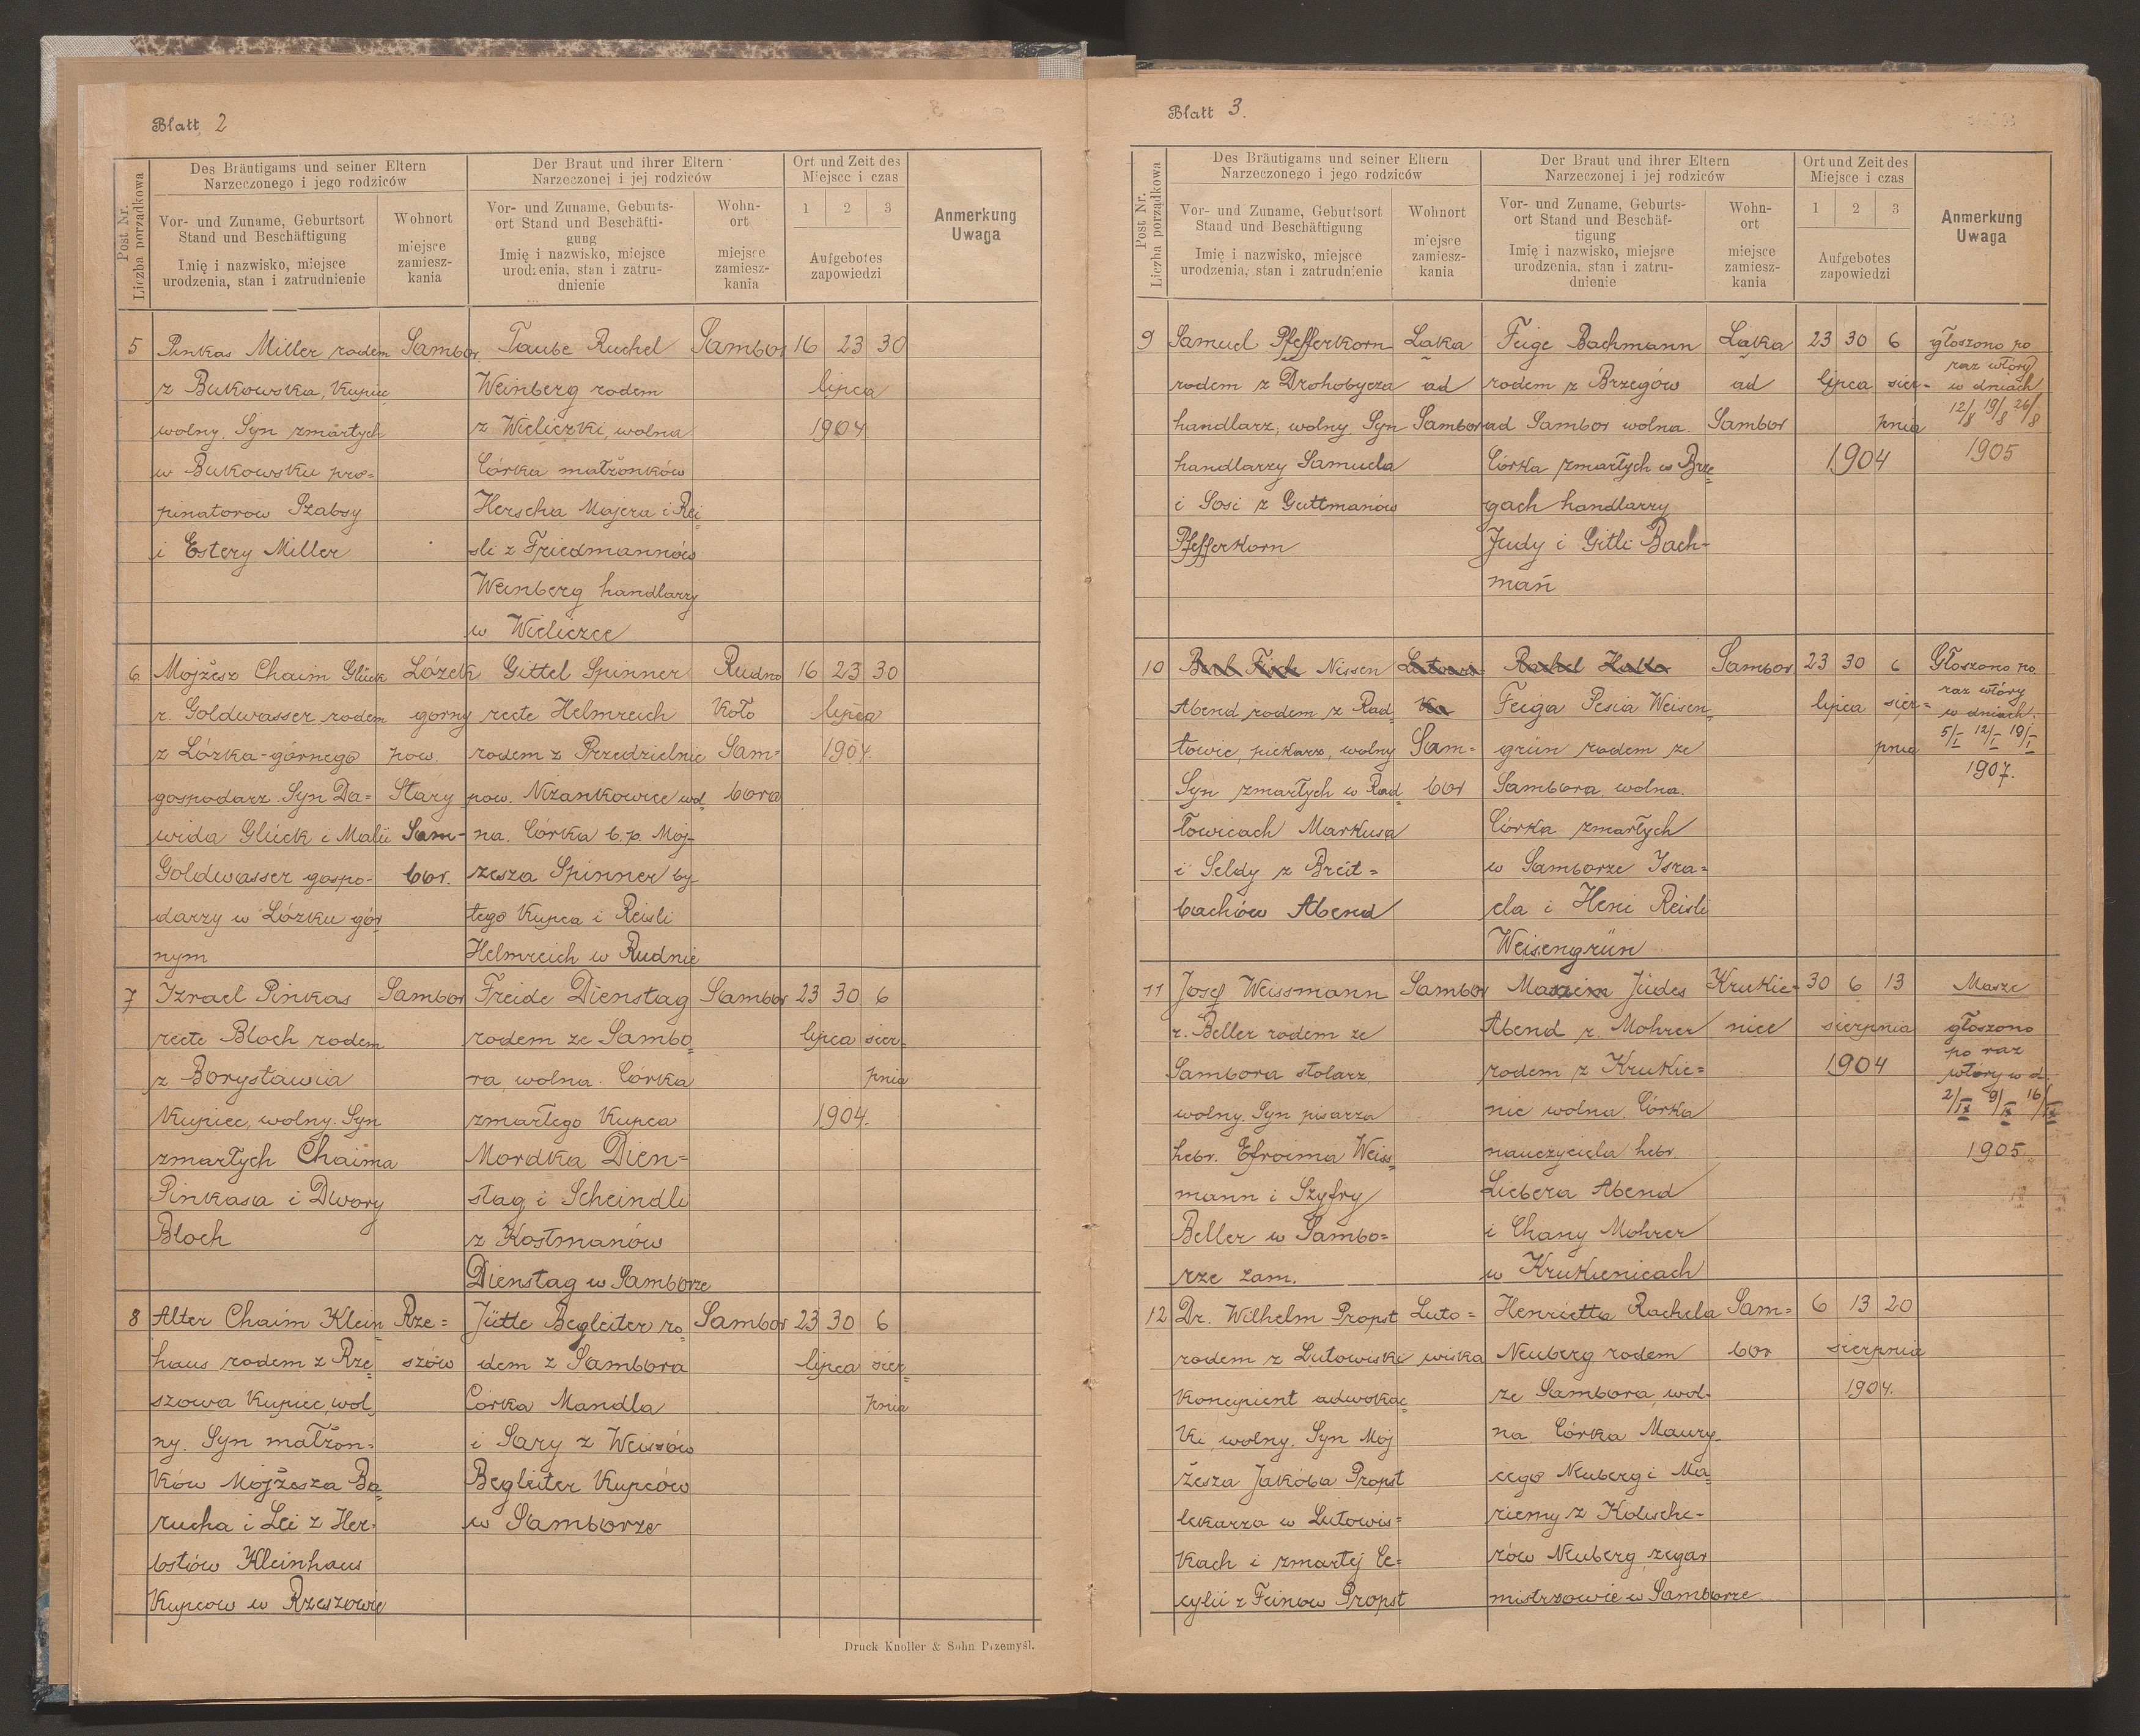 Blatt 2
Post Nr.
Liczba porządkowa
Des Bräutigams und seiner Eltern
Narzeczonego i jego rodziców
Der Braut und ihrer Eltern
Narzeczonej i jej rodziców
Ort und Zeit des
Miejsce i czas
Vor- und Zuname, Geburtsort
Stand und Beschäftigung
Imię i nazwisko, miejsce
urodzenia, stan i zatrudnienie
Wohnort
miejsce
zamiesz-
kania
Vor- und Zuname, Geburts-
ort Stand und Beschäfti-
gung
Imię i nazwisko, miejsce
urodzenia, stan i zatru-
dnienie
Wohn-
ort
miejsce
zamiesz-
kania
1 2 3
Aufgebotes
zapowiedzi
Anmerkung
Uwaga
5
Pinkas Miller rodem
z Bukowska, Kupiec
wolny. Syn zmarłych
w Bukowsku pro=
pinatorow Szabsy
i Estery Miller
Sambor
Taube Ruchel
Weinberg rodem
z Wieliczki, wolna
Córka małżonków
Herscha Majera i Rei=
sli z Friedmannów
Weinberg handlarzy
w Wieliczce
Sambor
16 23 30
lipca
1904
6
Mojżesz Chaim Glück
r. Goldwasser rodem
z Łózka-górnego
gospodarz. Syn Da=
wida Glück i Malii
Goldwasser gospo-
darzy w Łózku gór
nym
Łózek
gorny
pow.
Stary
Sam-
bor.
Gittel Spinner
recte Helmreich
rodem z Przedzielnic
pow. Niżankowice wol
na. Córka b.p. Moj-
zesza Spinner by-
łego Kupca i Reisli
Helmreich w Rudnie
Rudno
Koło
Sam=
bora
16 23 30
lipca
1904.
7
Izrael Pinkas
recte Bloch rodem
z Borysławia
Kupiec, wolny. Syn
zmarłych Chaima
Pinkasa i Dwory
Bloch
Sambor
Freide Dienstag
rodem ze Sambo=
ra, wolna. Córka
zmarłego Kupca
Mordka Dien=
stag i Scheindli
z Kostmanów
Dienstag w Samborze
Sambor
23 30 6
lipca sier-
pnia
1904.
8
Alter Chaim Klein
haus rodem z Rze=
szowa Kupiec, wol
ny. Syn małżon=
Ków Mojżesza Ba=
rucha i Lei z Her-
bstów Kleinhaus
Kupcow w Rzeszowie
Rze=
szów
Jütte Begleiter ro=
dem z Sambora
Córka Mandla
i Sary z Weiszów
Begleiter Kupców
w Samborze
Sambor
23 30 6
lipca sier
pnia
Druck Knoller & Sohn Przemyśl.
Blatt 3.
Post Nr.
Liczba porządkowa
Des Bräutigams und seiner Eltern
Narzeczonego i jego rodziców
Der Braut und ihrer Eltern
Narzeczonej i jej rodziców
Ort und Zeit des
Miejsce i czas
Vor- und Zuname, Geburtsort
Stand und Beschäftigung
Imię i nazwisko, miejsce
urodzenia, stan i zatrudnienie
Wohnort
miejsce
zamiesz-
kania
Vor- und Zuname, Geburts-
ort Stand und Beschäf-
tigung
Imię i nazwisko, miejsce
urodzenia, stan i zatru-
dnienie
Wohn-
ort
miejsce
zamiesz-
kania
1 2 3
Aufgebotes
zapowiedzi
Anmerkung
Uwaga
9
Samuel Pfefferkorn
rodem z Drohobycza
handlarz, wolny. Syn
handlarzy Samuela
i Sosi z Guttmanów
Pfefferkorn
Łaka
ad
Sambor
Feige Bachmann
rodem z Brzegów
ad Sambor wolna.
Córka zmarłych w Brze=
gach handlarzy
Judy i Gitli Bach-
mań
Łaka
ad
Sambor
23 30 6
lipca sier-
pnia
1904
głoszono po
raz wtóry
w dniach
12/8 19/8 26/8
1905
10
Nissen
Abend rodem z Rad-
łowic, piekarz, wolny
Syn zmarłych w Rad=
łowicach Markusa
i Seldy z Breit=
bachów Abend
Sam=
bor
Feiga Pesia Weisen
grün rodem ze
Sambora wolna.
Córka zmarłych
w Samborze Isra=
ela i Heni Reisli
Weisengrün
Sambor
23 30 6
lipca sier=
pnia
Głoszono po
raz wtóry
w dniach.
5/I 12/I 19/I
1907.
11
Josef Weissmann
r. Beller rodem ze
Sambora stolarz
wolny. Syn pisarza
hebr. Efroima Weiss=
mann i Szyfry
Beller w Sambo=
rze zam.
Sambor
Jüdes
Abend r. Mohrer
rodem z Krukie=
nic wolna. Córka
nauczyciela hebr.
Liebera Abend
i Chany Mohrer
w Krukienicach
Krukie-
nice
30 6 13
sierpnia
1904
głoszono
po raz
wtóry w d.
2/IX 9/IX 16/IX
1905
12
Dr. Wilhelm Propst
rodem z Lutowisk
Koncypient adwokac=
ki, wolny. Syn Moj
żesza Jakóba Propst
lekarza w Lutowis=
Kach i zmarłej Ce=
cylii z Feinow Propst
Luto=
wiska
Henrietta Rachela
Neuberg rodem
ze Sambora, wol-
na. Córka Maury-
cego Neuberg i Ma=
riemy z Kolische-
rów Neuberg zegar
mistrzowie w Samborze
Sam=
bor
6 13 20
sierpnia
1904.